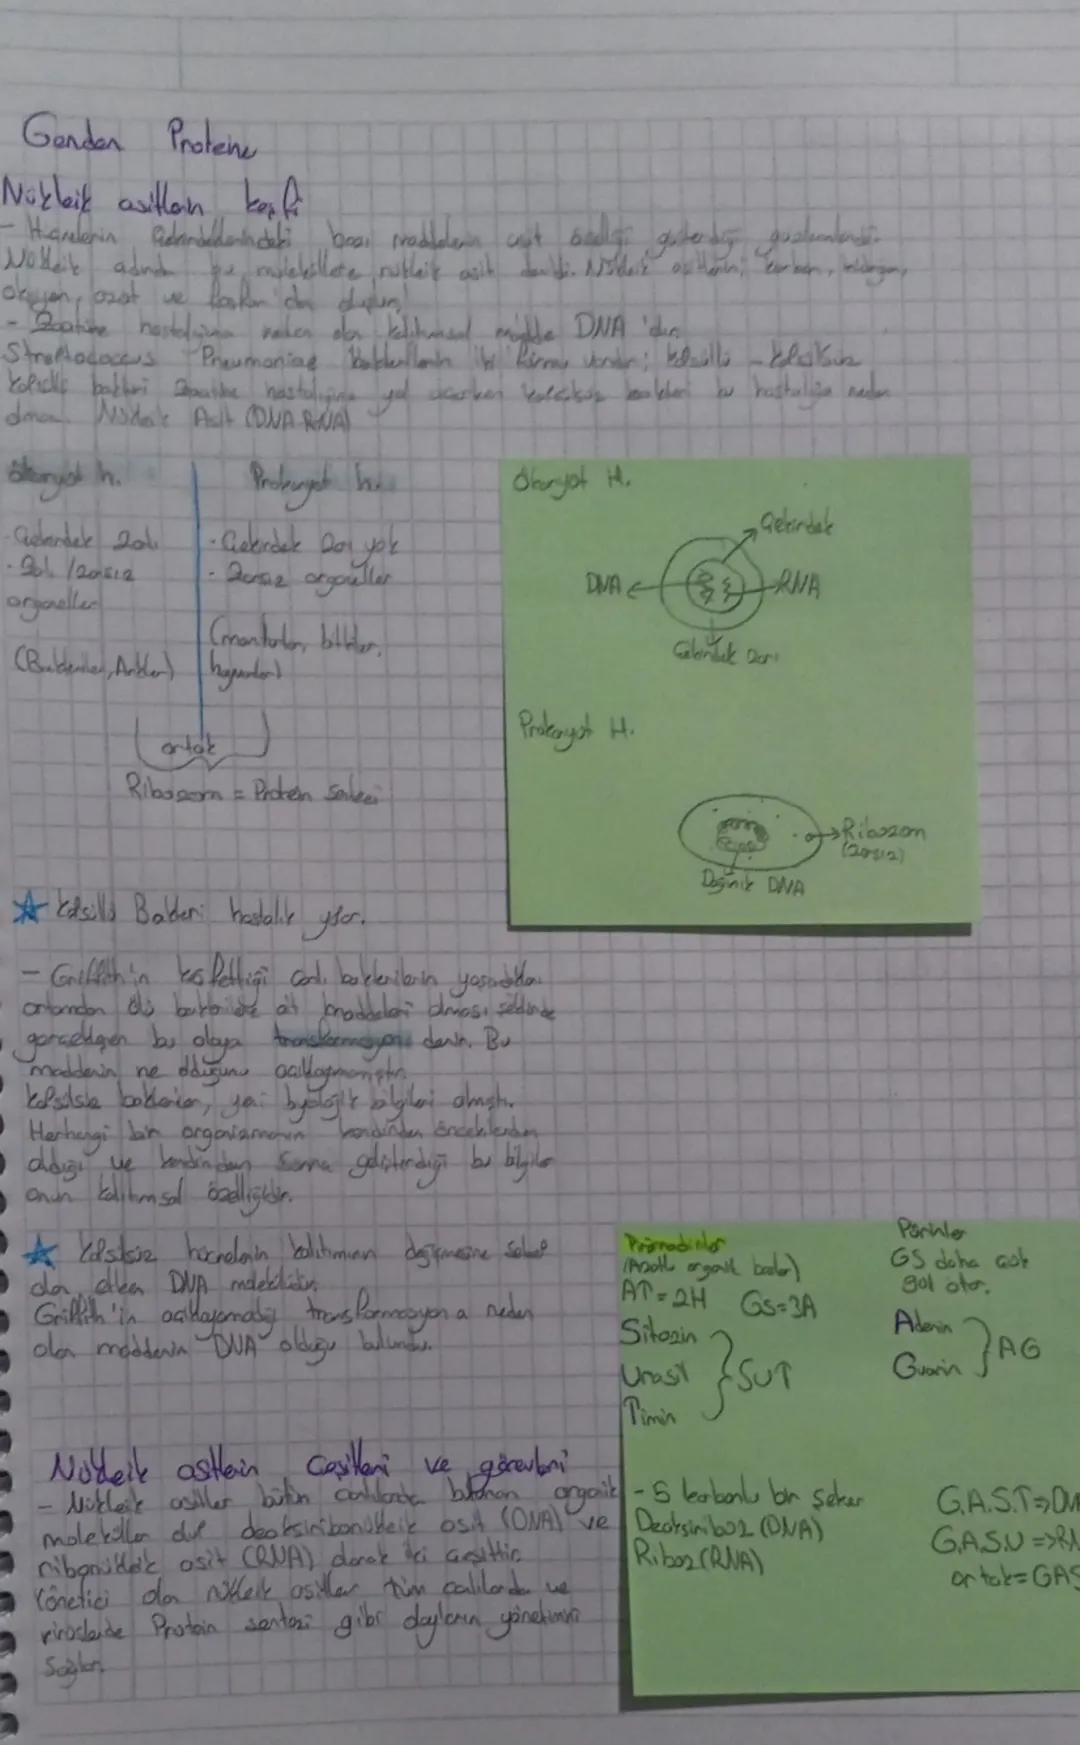 Genden Proteine
Nükleik asitlerin keşfi
- Hücrelerin bazı maddelerin asit özelliği gösterdiği gözlemlendi.
Nükleik adında bu moleküllere nükleik asit denildi. Nükleik asitlerin; karbon, hidrojen,
oksijen, azot ve fosfor'dan oluşur.
- Zatürre hastalığına neden olan kalıtımsal madde DNA'dır.
Pneumoniae iki vardır; kapsüllü - kapsülsüz
bakteri hastalığına yol açarken kapsülsüz bakteri bu hastalığa neden
olmaz. Nükleik Asit (DNA-RNA)
Ökaryot h.
- Çekirdek Zarlı
- Zarlı / zarsız
organeller
(Bakteriler, Arkeler)
Prokaryot h.
- Çekirdek Zarı yok
- Zarsız organeller
(mantarlar, bitkiler,
hayvanlar)
ortak
Ribozom = Protein Sentezi
Ökaryot H.
Çekirdek
DNA
RNA
Çekirdek Zarı
Prokaryot H.
Ribozom
(zarsız)
Dağınık DNA
Kapsüllü Bakteri hastalık yapar.
- Griffith'in keşfettiği canlı bakterilerin yaşadıkları
ortamdan ölü bakterilere ait maddeleri alması şeklinde
gerçekleşen bu olaya transformasyon denir. Bu
maddenin ne olduğunu açıklayamamıştır.
Kapsülsüz bakteriler, yeni biyolojik bilgileri almıştı.
Herhangi bir organizmanın kendinden öncekilerden
aldığı ve kendinden sonra geliştirdiği bu bilgiler
onun kalıtımsal özelliğidir.
Kapsülsüz hücrelerin kalıtımının değişmesine sebep
olan etken DNA molekülüdür.
Griffith'in açıklayamadığı transformasyon a neden
olan maddenin DNA olduğu bulundu.
(Azotlu organik bazlar)
AT=2H GS=3A
Sitozin
Urasil
Timin
SUT
Pürinler
GS daha çok
yol atar.
Adenin
Guanin
AG
Nükleik asitlerin Çeşitleri ve görevleri
- Nükleik asitler bütün canlılarda bulunan organik
moleküller olup deoksiribonükleik asit (DNA) ve
ribonükleik asit (RNA) olarak iki çeşittir.
Yönetici olan nükleik asitler tüm canlılarda ve
virüslerde Protein sentezi gibi olayların yönetimini
Sağlar.
- 5 karbonlu bir şeker
Deoksiriboz (DNA)
Riboz (RNA)
G.A.S.T=>DN
G.A.S.U=>RN
ortak=GAS